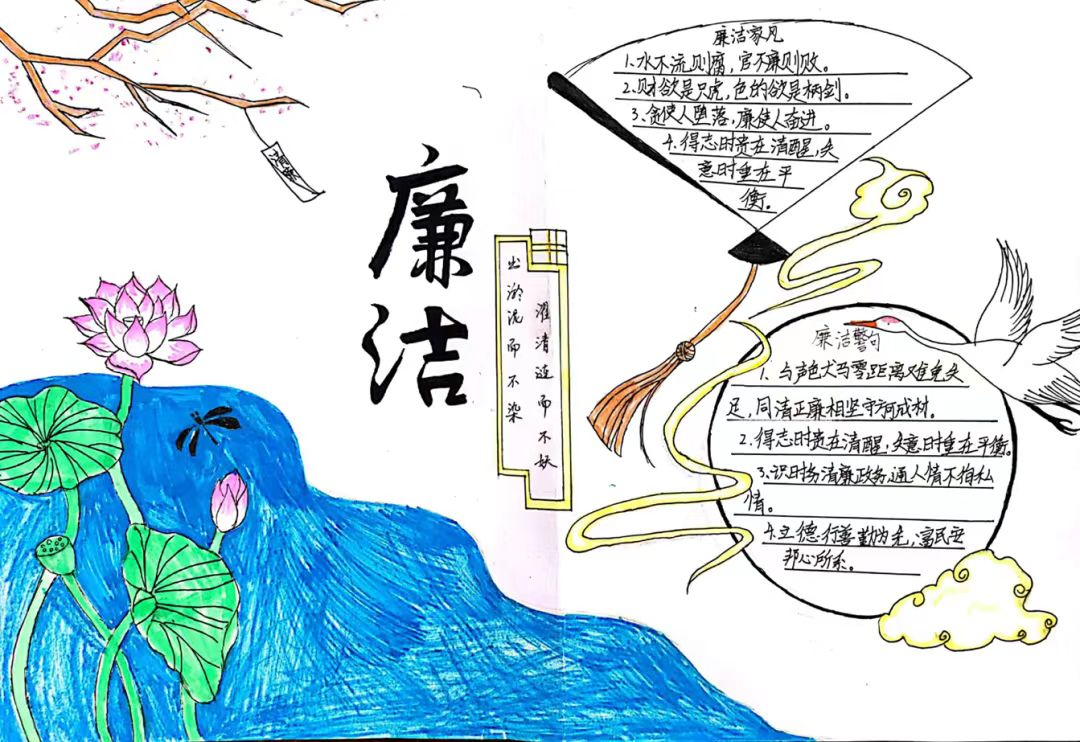 廉洁
出淤泥而不染
濯清涟而不妖
廉洁家风
1.水不流则腐,官不廉则败。
2.财欲是只虎,色的欲是柄剑。
3.贪使人堕落,廉使人奋进。
4.得志时贵在清醒,失
意时重在平
衡。
廉洁警句
1.与声色犬马零距离难免失
足,同清正廉相坚守河成材。
2.得志时贵在清醒,失意时重在平衡。
3.识时务清廉政务,通人情不徇私
情。
4.立德行善勤为先,富民安
邦心所系。